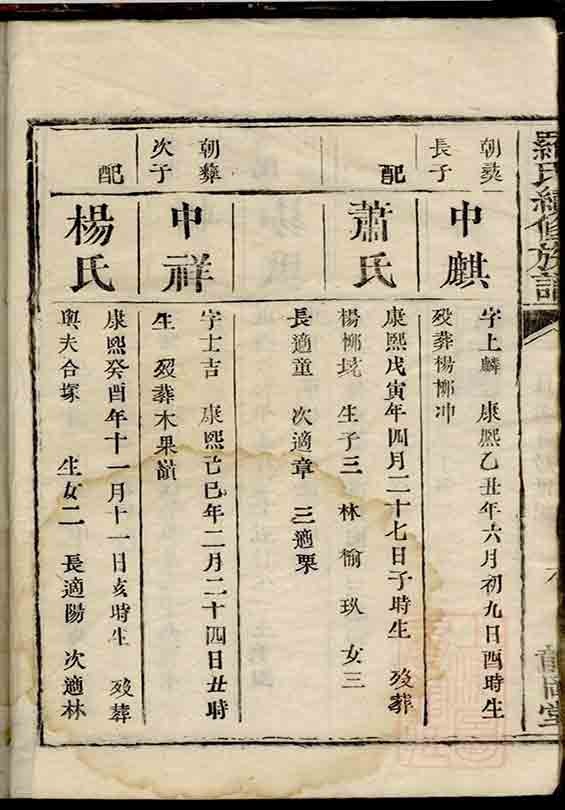 羅氏續修族譜
朝彛
長子
中麒
字上麟 康熙乙丑年六月初九日酉時生
歿葬楊柳冲
配
蕭氏
康熙戊寅年四月二十七日子時生 歿葬
楊柳坑 生子三 林 楡 玖 女三
長適童 次適章 三適栗
朝彛
次子
中祥
字士吉 康熙己巳年二月二十四日丑時
生 歿葬木果嶺
配
楊氏
康熙癸酉年十一月十一日亥時生 歿葬
與夫合塚 生女二 長適陽 次適林